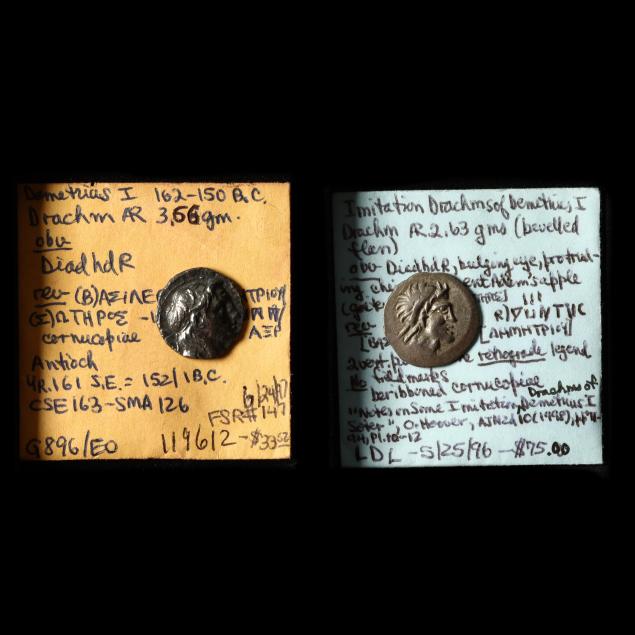 Demetrius I 162-150 B.C.
Drachm AR 3.56 gm.
obv
Diad hd R
rev (B)ΑΣΙΛΕ ΤΡΙΟΥ
(Σ)ΩΤΗΡΟΣ
cornucopiae ΑΞΡ
Antioch
YR.161 S.E. = 152/1 B.C.
CSE 163-SMA 126
6/24/97
FSR#147
G896/EO 119612-$33.52
Imitation Drachms of Demetrius I
Drachm AR 2.63 gms (bevelled
flan)
obv Diad hd R, bulging eye, protrud-
ing Adam's apple
rev
[ΔΗΜΗΤΡΙΟΥ
retrograde legend
No field marks
beribboned cornucopiae Drachms of
"Notes on Some Imitation, Demetrius I
Soter", O. Hoover, AJN 2d 10 (1998), pp 71-
94, Pl. 10-12
LDL - 5/25/96 - $75.00